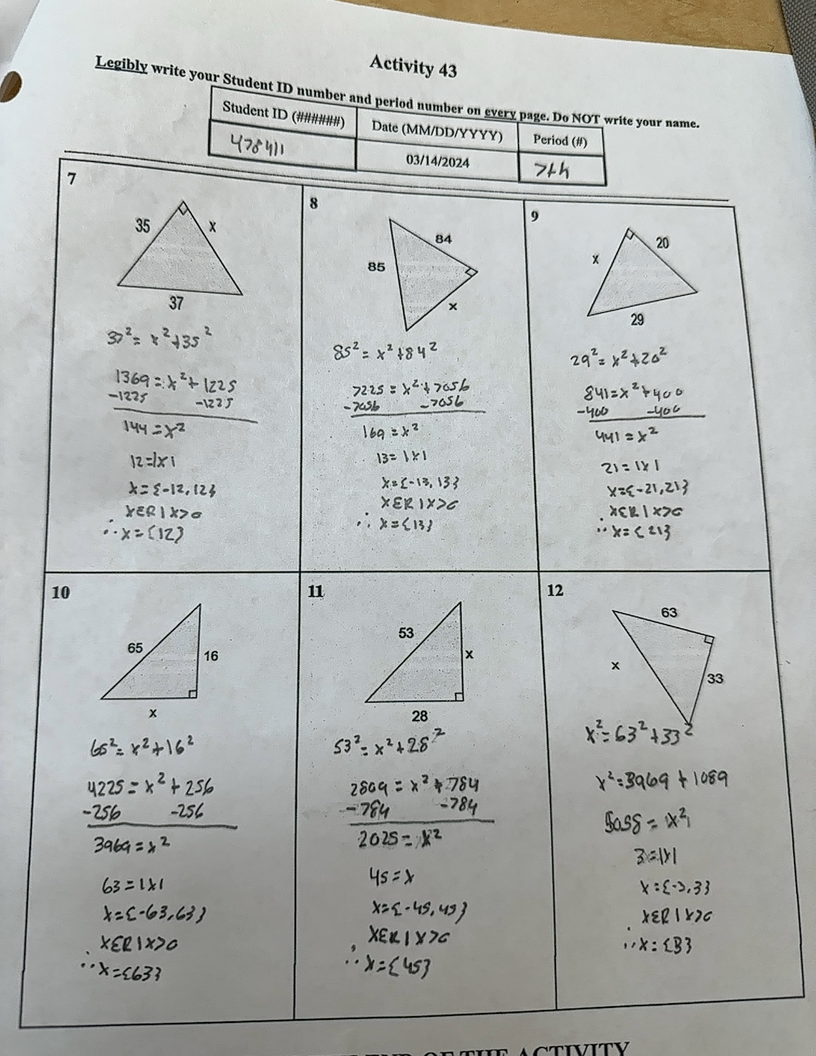 Activity 43
Legibly write your Student ID number and period number on every page. Do NOT write your name.
Student ID (######) Date (MM/DD/YYYY) Period (#)
478411 03/14/2024 7th
7
35
x
37
37² = x² + 35²
1369 = x² + 1225
-1225 -1225
144 = x²
12 = |x|
x = {-12, 12}
x∈R | x>0
∴ x = {12}
8
84
85
x
85² = x² + 84²
7225 = x² + 7056
-7056 -7056
169 = x²
13 = |x|
x = {-13, 13}
x∈R | x>0
∴ x = {13}
9
20
x
29
29² = x² + 20²
841 = x² + 400
-400 -400
441 = x²
21 = |x|
x = {-21, 21}
x∈R | x>0
∴ x = {21}
10
65
16
x
65² = x² + 16²
4225 = x² + 256
-256 -256
3969 = x²
63 = |x|
x = {-63, 63}
x∈R | x>0
∴ x = {63}
11
53
x
28
53² = x² + 28²
2809 = x² + 784
-784 -784
2025 = x²
45 = x
x = {-45, 45}
x∈R | x>0
∴ x = {45}
12
63
x
33
x² = 63² + 33²
x² = 3969 + 1089
5058 = x²
3 = |x|
x = {-3, 3}
x∈R | x>0
∴ x = {3}
END OF THE ACTIVITY